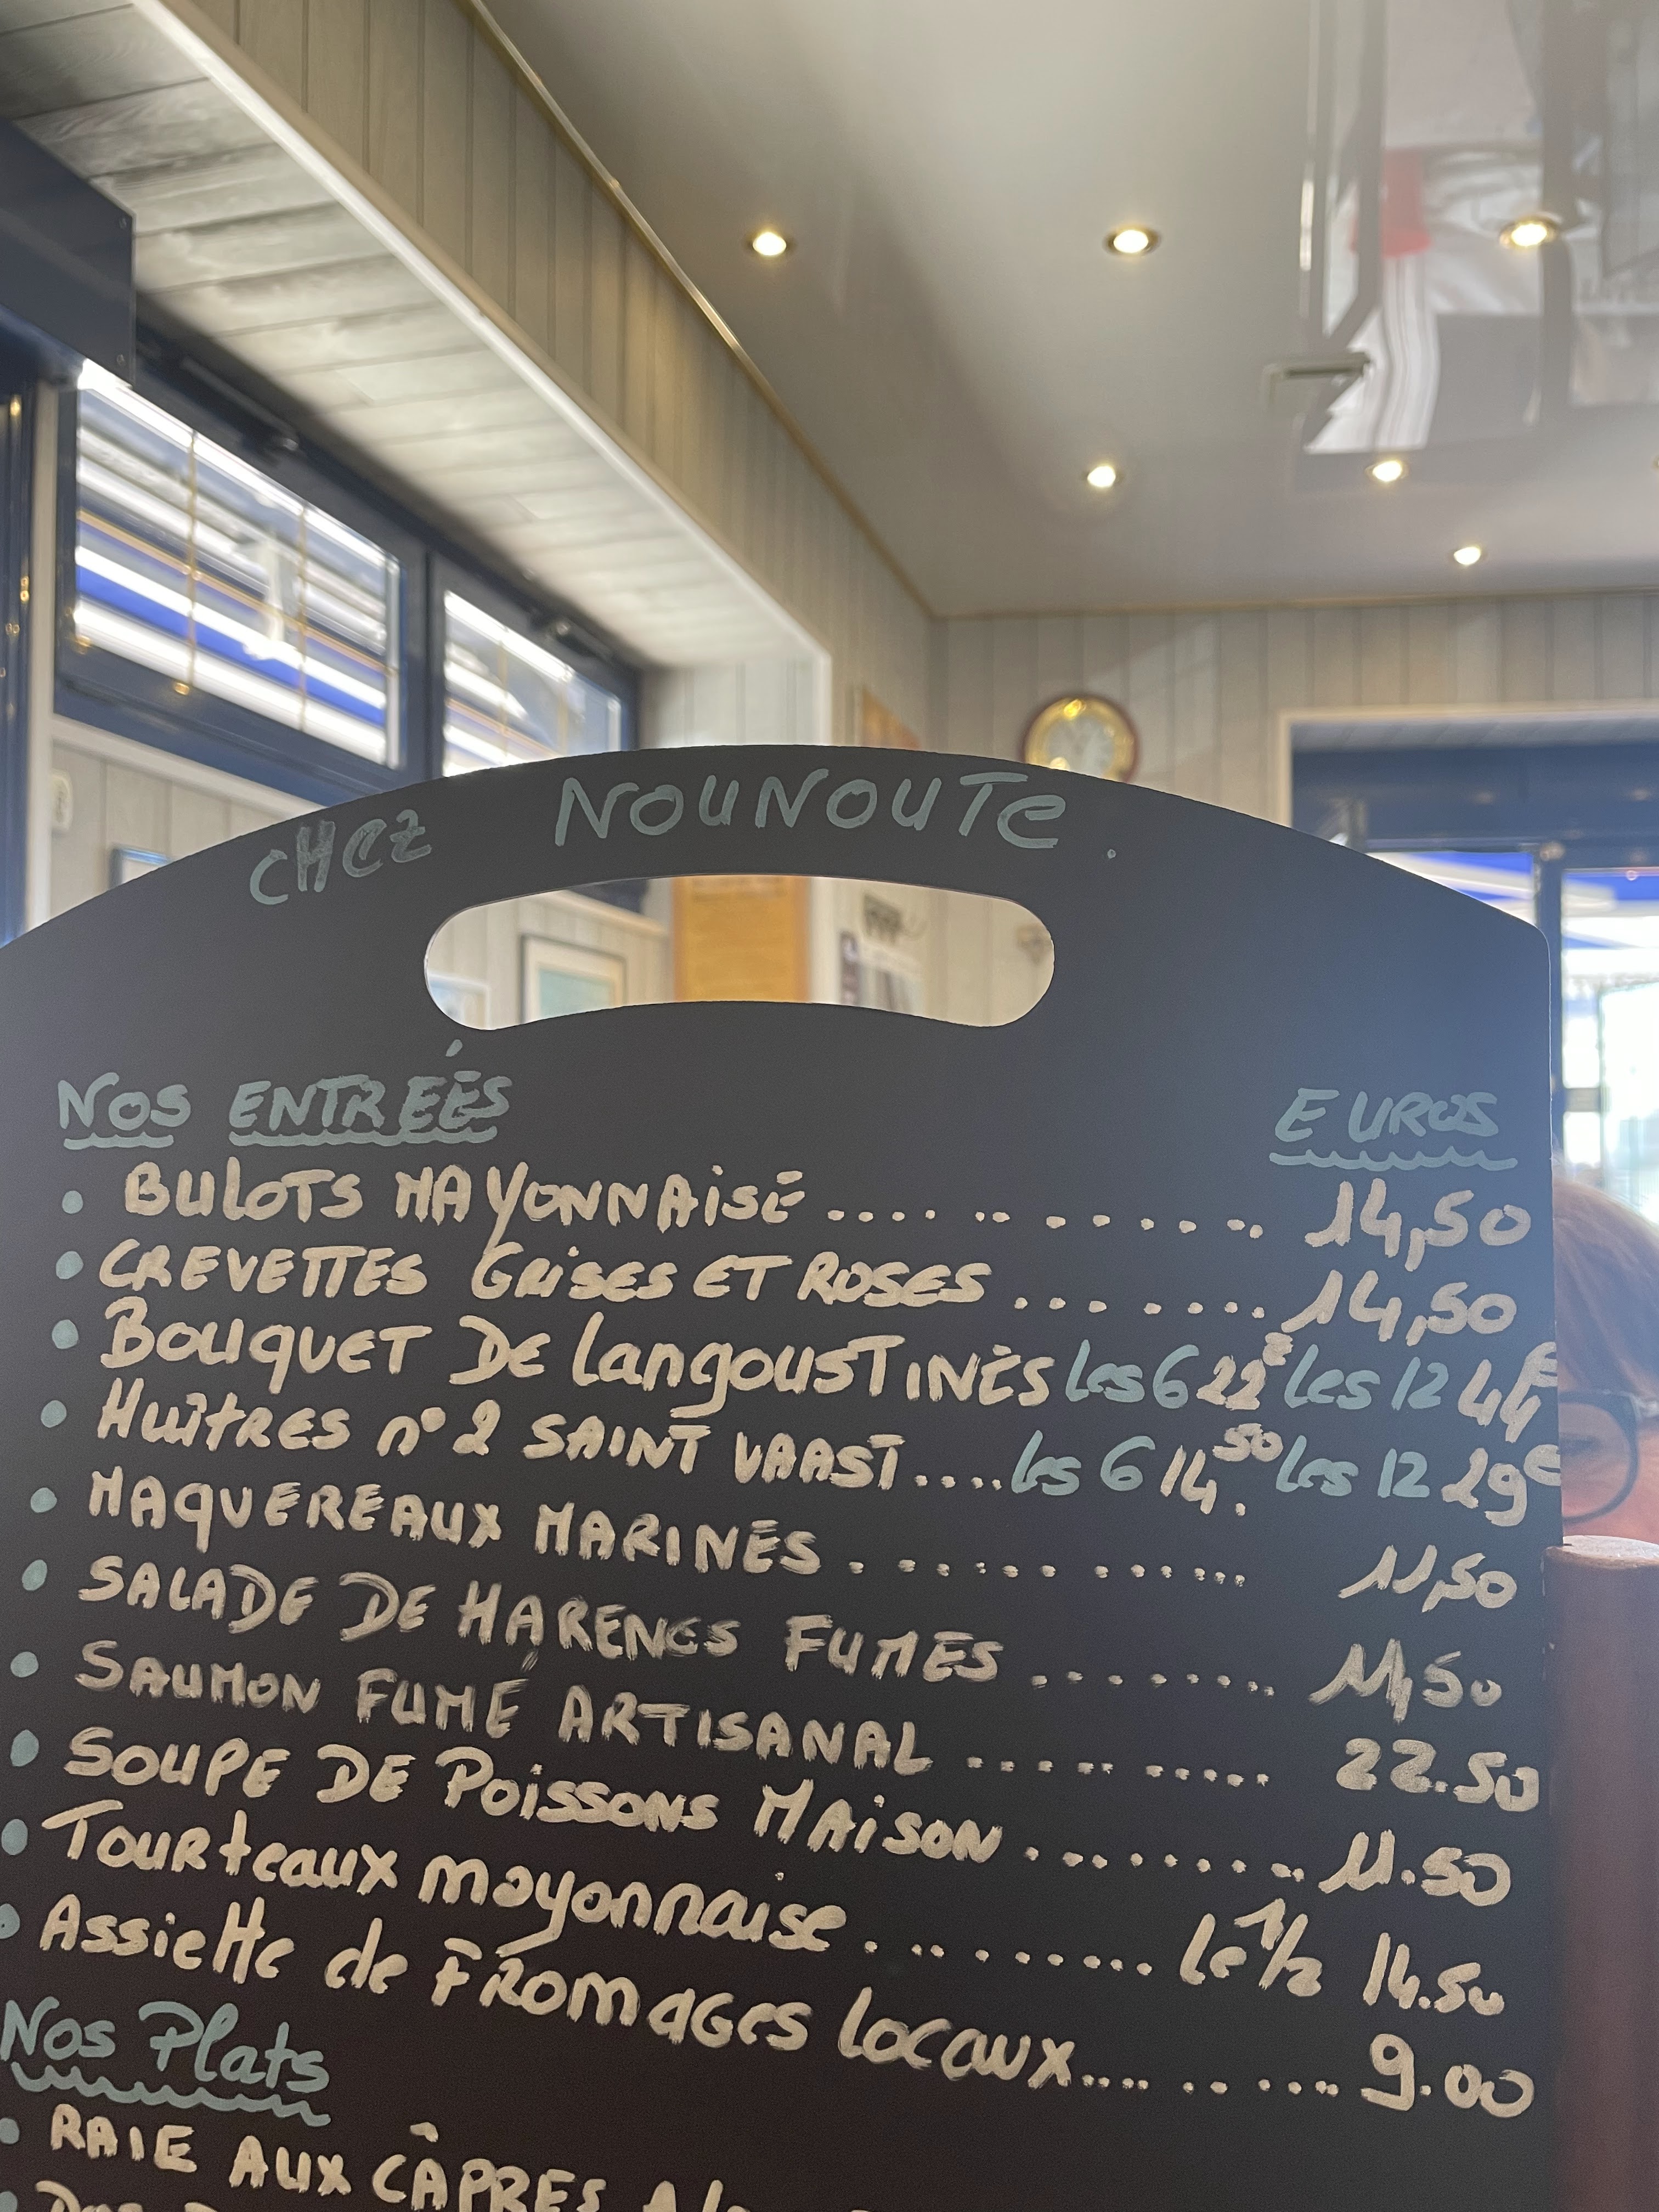 CHEZ NOUNOUTE.
NOS ENTREÉS EUROS
• BULOTS MAYONNAISE ............ 14,50
• CREVETTES GRISES ET ROSES ........ 14,50
• BOUQUET DE LANGOUSTINES les 6 22€ les 12 44€
• Huîtres n°2 SAINT VAAST.... les 6 14.50 les 12 29€
• MAQUEREAUX MARINÉS ............. 11,50
• SALADE DE HARENGS FUMÉS ........ 11,50
• SAUMON FUMÉ ARTISANAL .......... 22.50
• SOUPE DE POISSONS MAISON ......... 11.50
• Tourteaux mayonnaise .......... le 1/2 14.50
• Assiette de FROMAGES locaux......... 9.00
Nos Plats
• RAIE AUX CÂPRES